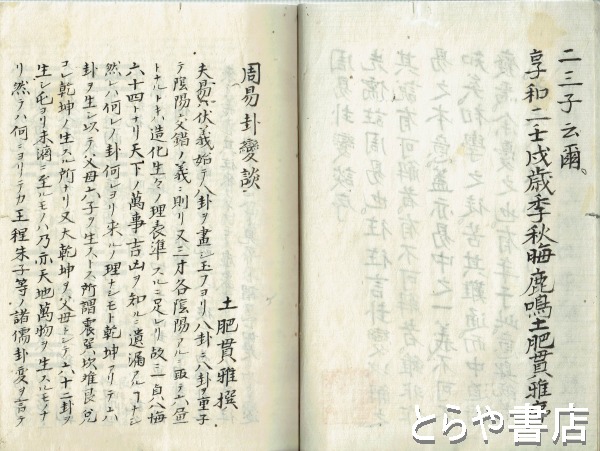 二三子云爾、
享和二壬戌歳季秋晦鹿鳴土肥貫雅
周易卦變談
土肥貫雅撰
夫易ハ伏羲始テ八卦ヲ畫シ玉フヨリ八卦ニ八卦ヲ重子
テ陰陽交錯ノ義ニ則リ又三才各陰陽アルニ取テ六畫
トナルトキハ造化生々ノ理表準スルニ足レリ故ニ一貞八悔
六十四トナリ天下ノ萬事吉凶ヲ知ルニ遺漏アルフナシ
然レハ何レノ卦何レヨリ来ルノ理ナシモト乾坤アリテ六
卦ヲ生シ以テ父母六子ヲ生ストス所謂震巽坎離艮兌
コレ乾坤ノ生スル所ナリ又大乾坤ヲ父母トシテ六十二卦ヲ
生シ屯ヨリ未濟ニ至ルモノハ乃亦天地萬物ヲ生スルモノナ
リ然ラハ何ニヨリテカ王程朱子等ノ諸儒卦變ヲ言テ
とらや書店